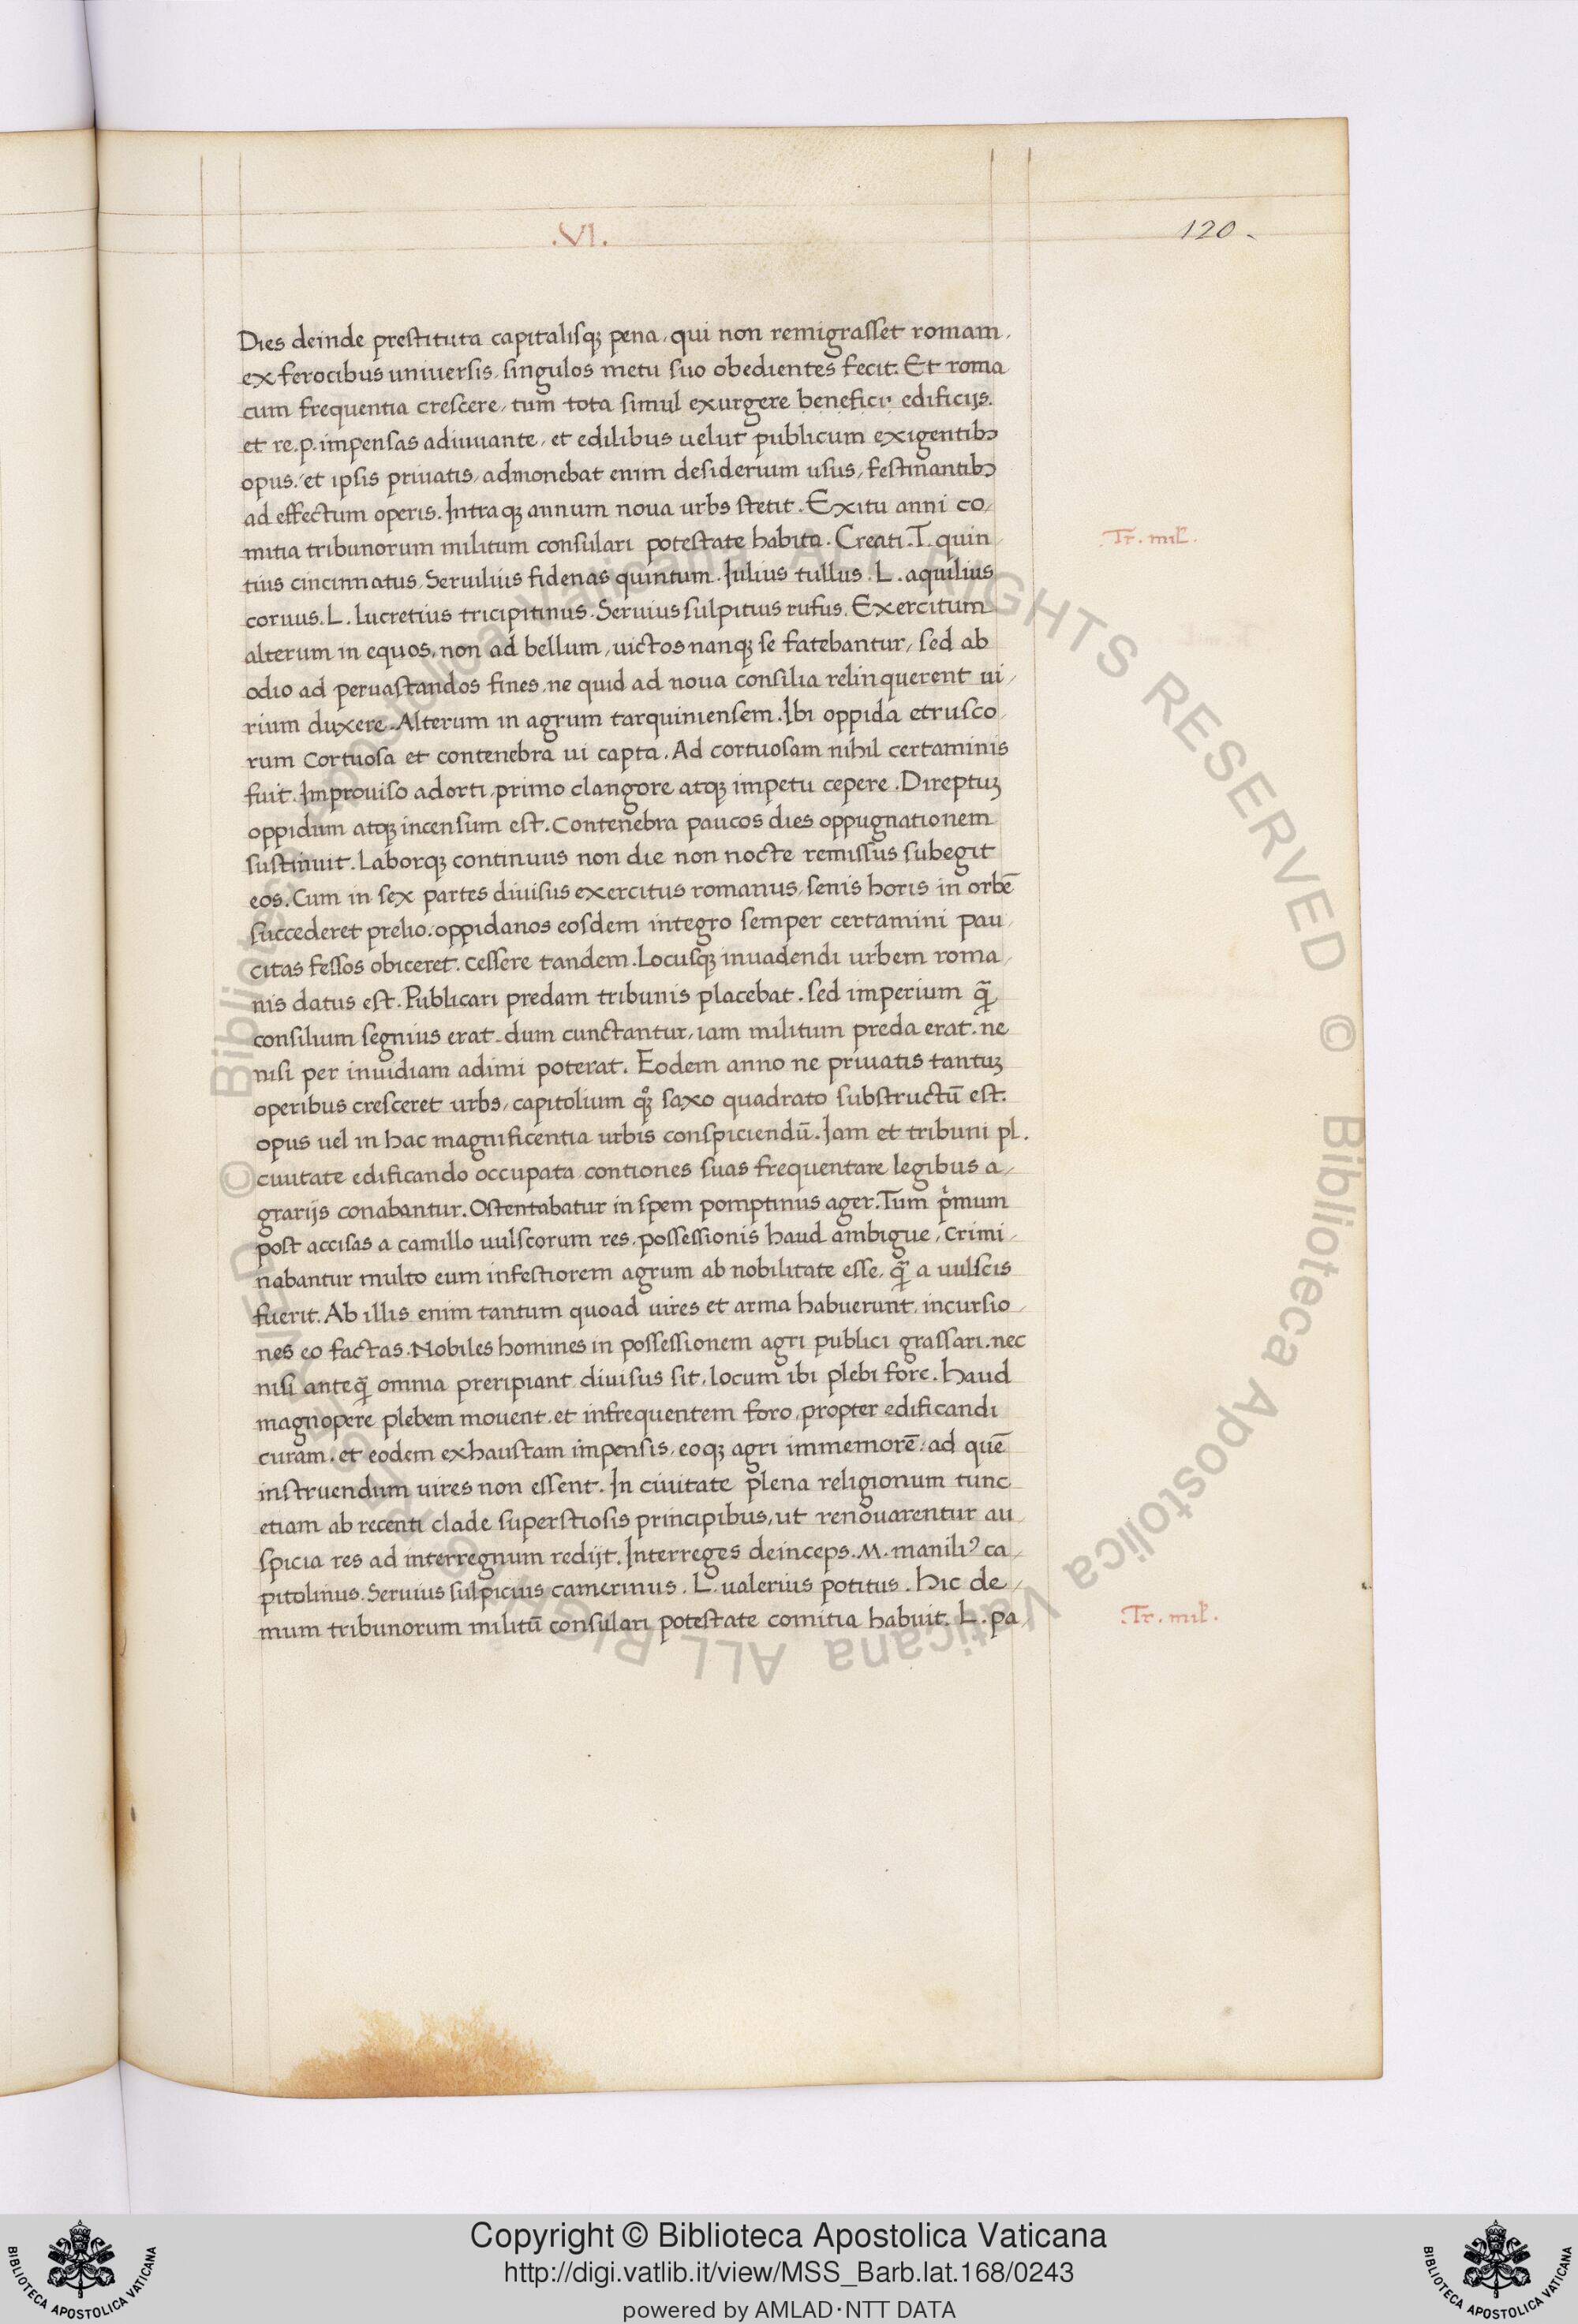 .VI.
120.
Dies deinde prestituta capitalisq; pena, qui non remigrasset romam,
ex ferocibus uniuersis, singulos metu suo obedientes fecit. Et roma
cum frequentia crescere, tum tota simul exurgere beneficii edificijs.
et re.p. impensas adiuuante, et edilibus uelut publicum exigentibꝫ
opus, et ipsis priuatis, admonebat enim desiderium usus, festinantibꝫ
ad effectum operis. Intraq; annum noua urbs stetit. Exitu anni co,
mitia tribunorum militum consulari potestate habita. Creati. T. quin,
Tr. mil.
tius cincinnatus, Seruilius fidenas quintum. Iulius tullus. L. aquilius
coruus. L. lucretius tricipitinus. Seruius sulpitius rufus. Exercitum
alterum in equos, non ad bellum, uictos nanq; se fatebantur, sed ab
odio ad peruastandos fines, ne quid ad noua consilia relinquerent ui,
rium duxere. Alterum in agrum tarquiniensem. Ibi oppida etrusco,
rum Cortuosa et contenebra ui capta. Ad cortuosam nihil certaminis
fuit. Improuiso adorti, primo clangore atq; impetu cepere. Direptuꝫ
oppidum atq; incensum est. Contenebra paucos dies oppugnationem
sustinuit. Laborq; continuus non die non nocte remissus subegit
eos. Cum in sex partes diuisus exercitus romanus, senis horis in orbē
succederet prelio. oppidanos eosdem integro semper certamini pau,
citas fessos obiceret. cessere tandem. Locusq; inuadendi urbem roma,
nis datus est. Publicari predam tribunis placebat. sed imperium q̄ꝫ
consilium segnius erat. dum cunctantur, iam militum preda erat. ne
nisi per inuidiam adimi poterat. Eodem anno ne priuatis tantuꝫ
operibus cresceret urbs, capitolium qͦꝫ saxo quadrato substructū est.
opus uel in hac magnificentia urbis conspiciendū. Iam et tribuni pl.
ciuitate edificando occupata contiones suas frequentare legibus a,
grarijs conabantur. Ostentabatur in spem pomptinus ager. Tum pͥmum
post accisas a camillo uulscorum res, possessionis haud ambigue, Crimi,
nabantur multo eum infestiorem agrum ab nobilitate esse, q̄ꝫ a uulscis
fuerit. Ab illis enim tantum quoad uires et arma habuerunt, incursio,
nes eo factas. Nobiles homines in possessionem agri publici grassari. nec
nisi anteq̄ꝫ omnia preripiant diuisus sit, locum ibi plebi fore. haud
magnopere plebem mouent, et infrequentem foro, propter edificandi
curam, et eodem exhaustam impensis, eoq; agri immemorē, ad quē
instruendum uires non essent. In ciuitate plena religionum tunc
etiam ab recenti clade superstiosis principibus, ut renouarentur au,
spicia res ad interregnum redijt. Interreges deinceps. M. maniliꝰ ca,
pitolinus. Seruius sulpicius camerinus. L. ualerius potitus. hic de,
mum tribunorum militū consulari potestate comitia habuit. L. pa,
Tr. mil.
Copyright © Biblioteca Apostolica Vaticana
http://digi.vatlib.it/view/MSS_Barb.lat.168/0243
powered by AMLAD·NTT DATA
BIBLIOTECA APOSTOLICA VATICANA
BIBLIOTECA APOSTOLICA VATICANA
© Biblioteca Apostolica Vaticana ALL RIGHTS RESERVED © Biblioteca Apostolica Vaticana ALL RIGHTS RESERVED